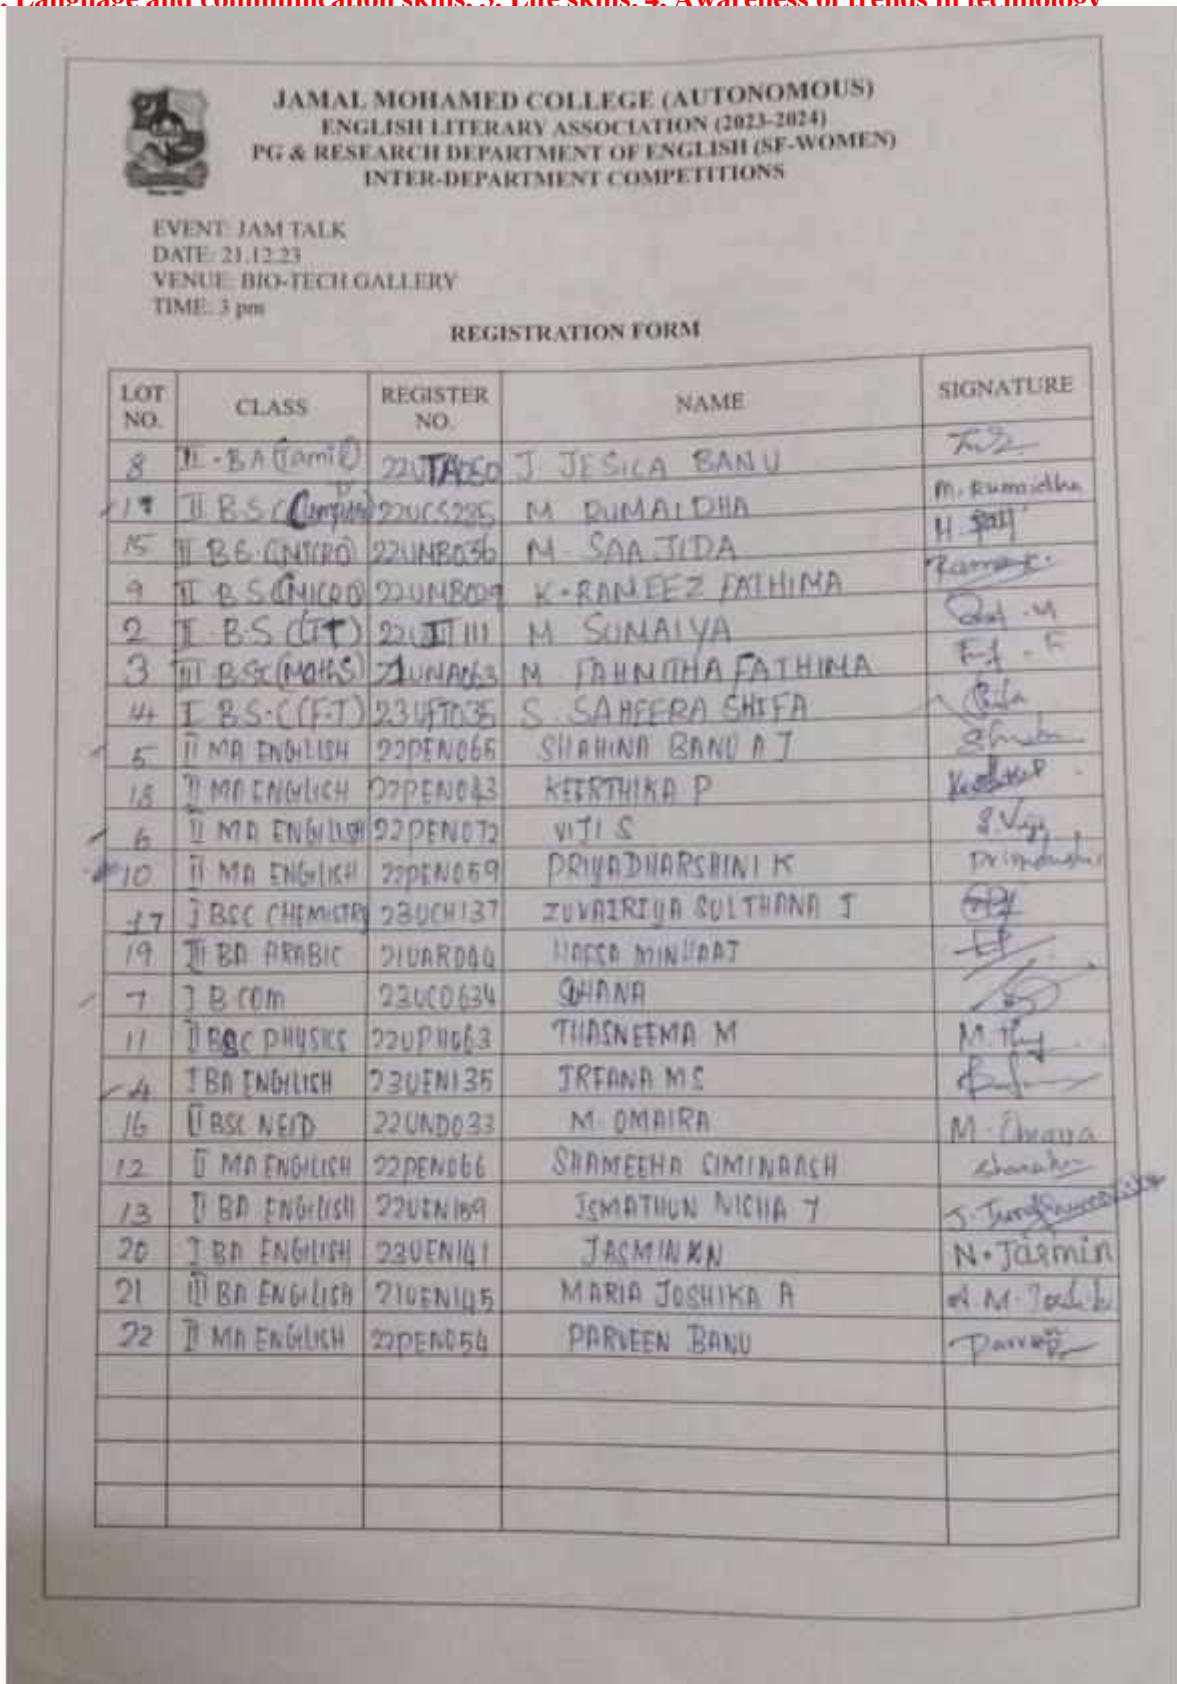 . Language and communication skills. 3. Life skills. 4. Awareness of trends in technology
JAMAL MOHAMED COLLEGE (AUTONOMOUS)
ENGLISH LITERARY ASSOCIATION (2023-2024)
PG & RESEARCH DEPARTMENT OF ENGLISH (SF-WOMEN)
INTER-DEPARTMENT COMPETITIONS
EVENT: JAM TALK
DATE: 21.12.23
VENUE: BIO-TECH GALLERY
TIME: 3 pm
REGISTRATION FORM
LOT NO. CLASS REGISTER NO. NAME SIGNATURE
8 II - BA (Tamil) 22UTA050 J. JESICA BANU
II B.S.C 22UCS235 M. RUMAIDHA M. Rumaidha
15 II B.S.C (MICRO) 22UMB036 M. SAAJIDA
9 II B.S.C (MICRO) 22UMB029 K. RAMEEZ FATHIMA
2 B.S.C (IT) 22UIT111 M. SUMAIYA
3 III B.SC (MATHS) 21UMA063 M. FAHMITHA FATHIMA
I B.S.C (F.T) 23UFT035 S. SAHEERA SHIFA
5 II MA ENGLISH 22PEN065 SHAHINA BANU A J
18 II MA ENGLISH 22PEN043 KEERTHIKA P
6 II MA ENGLISH 22PEN072 VIJI S S. Viji
10 II MA ENGLISH 22PEN059 PRIYADHARSHINI K
17 I BSC CHEMISTRY 23UCH137 ZUVAIRIYA SULTHANA J
19 III BA ARABIC 21UAR044 HAFSA MINHAAJ
7 I B.COM 23UCO634
11 II BSC PHYSICS 22UPH063 THASNEEMA M
4 I BA ENGLISH 23UEN135 IRFANA MS
16 II BSC N&D 22UND033 M. OMAIRA
12 II MA ENGLISH 22PEN066 SHAMEEHA
13 II BA ENGLISH 22UEN169 ISMATHUN NISHA J
20 I BA ENGLISH 23UEN141 JASMIN N N. Jasmin
21 III BA ENGLISH 21UEN145 MARIA JOSHIKA A
22 II MA ENGLISH 22PEN054 PARVEEN BANU